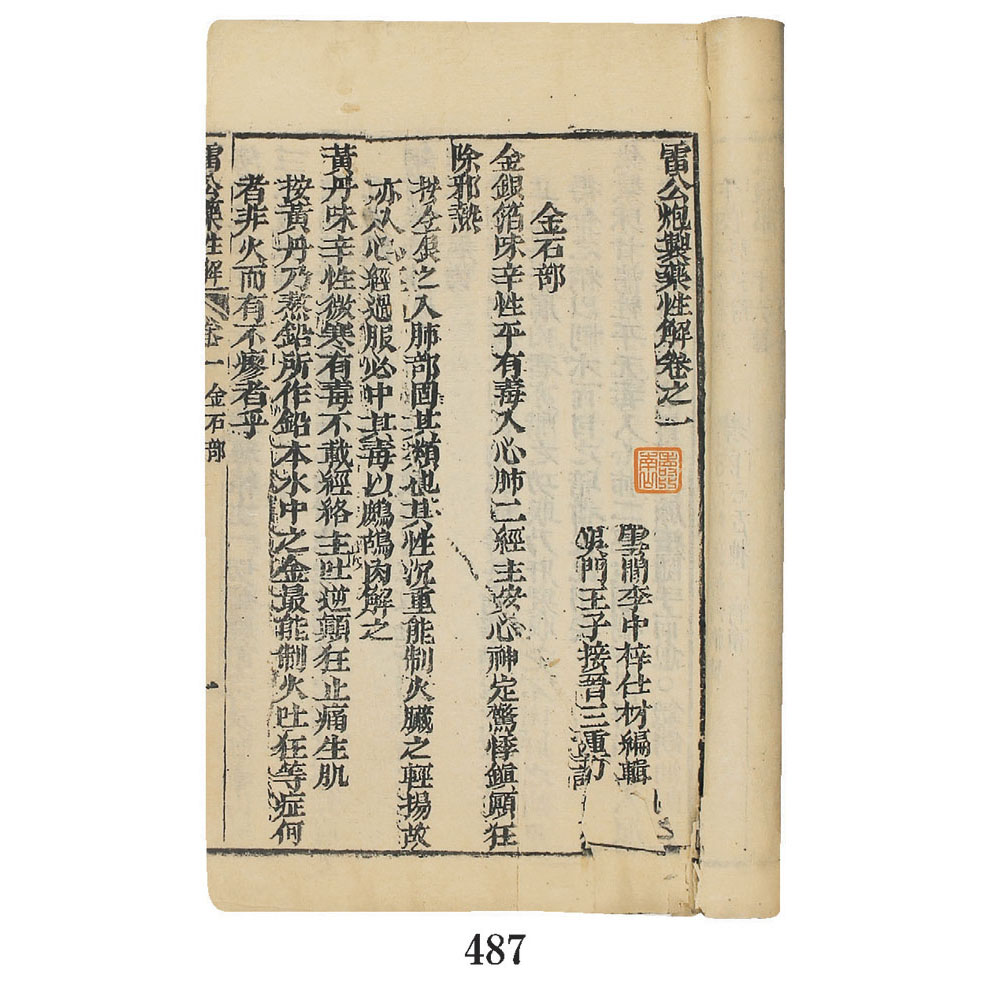 雷公炮製藥性解卷之一
雲間李中梓仕材編輯
門王子接晉三重訂
金石部
金銀箔味辛性平有毒入心肺二經主安心神定驚悸鎮顛狂
除邪熱
按金銀之入肺部固其類也其性沉重能制火臟之輕揚故
亦入心經過服必中其毒以鷓鴣肉解之
黃丹味辛性微寒有毒不載經絡主吐逆顛狂止痛生肌
按黃丹乃蒸鉛所作鉛本水中之金最能制火吐狂等症何
者非火而有不瘳者乎
雷公藥性解 卷一 金石部 一
487